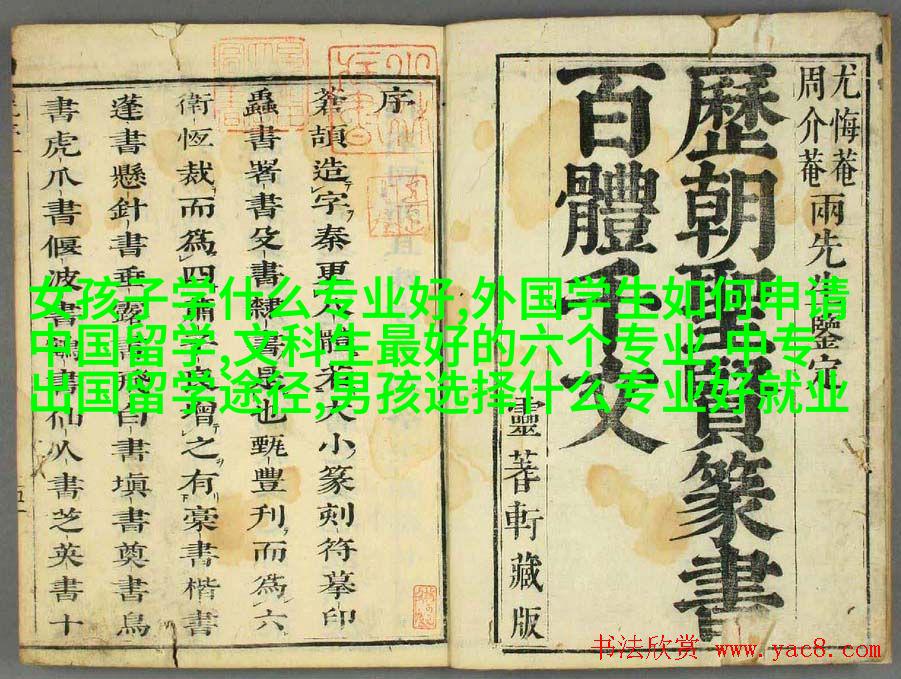 尤悔菴
周介菴
兩先生鑒定
歷朝聖賢篆書
百體千文
靈蓍軒藏版
序
蒼頡造字秦更八體若大小篆刻符摹印
蟲書署書殳書隸書是也甄豐刋而為六
衛恆裁而為四蕭子良增之有稾書楷書
蓬書懸針書垂露書飛白書塡書奠書鳥
書虎爪書偃波書鶴書仙人書芝英書十
女孩子学什么专业好,外国学生如何申请
中国留学,文科生最好的六个专业,中专
出国留学途径,男孩选择什么专业好就业
书法欣赏 www.yac8.com